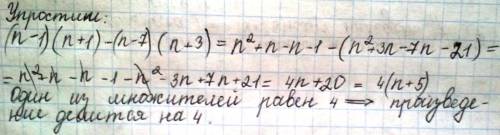 Упростим:
(n-1)(n+1)-(n-7)(n+3)=n²+n-n-1-(n²+3n-7n-21)=
=n²+n-n-1-n²-3n+7n+21= 4n+20 = 4(n+5)
Один из множителей равен 4 ⟹ произведе-
ние делится на 4.